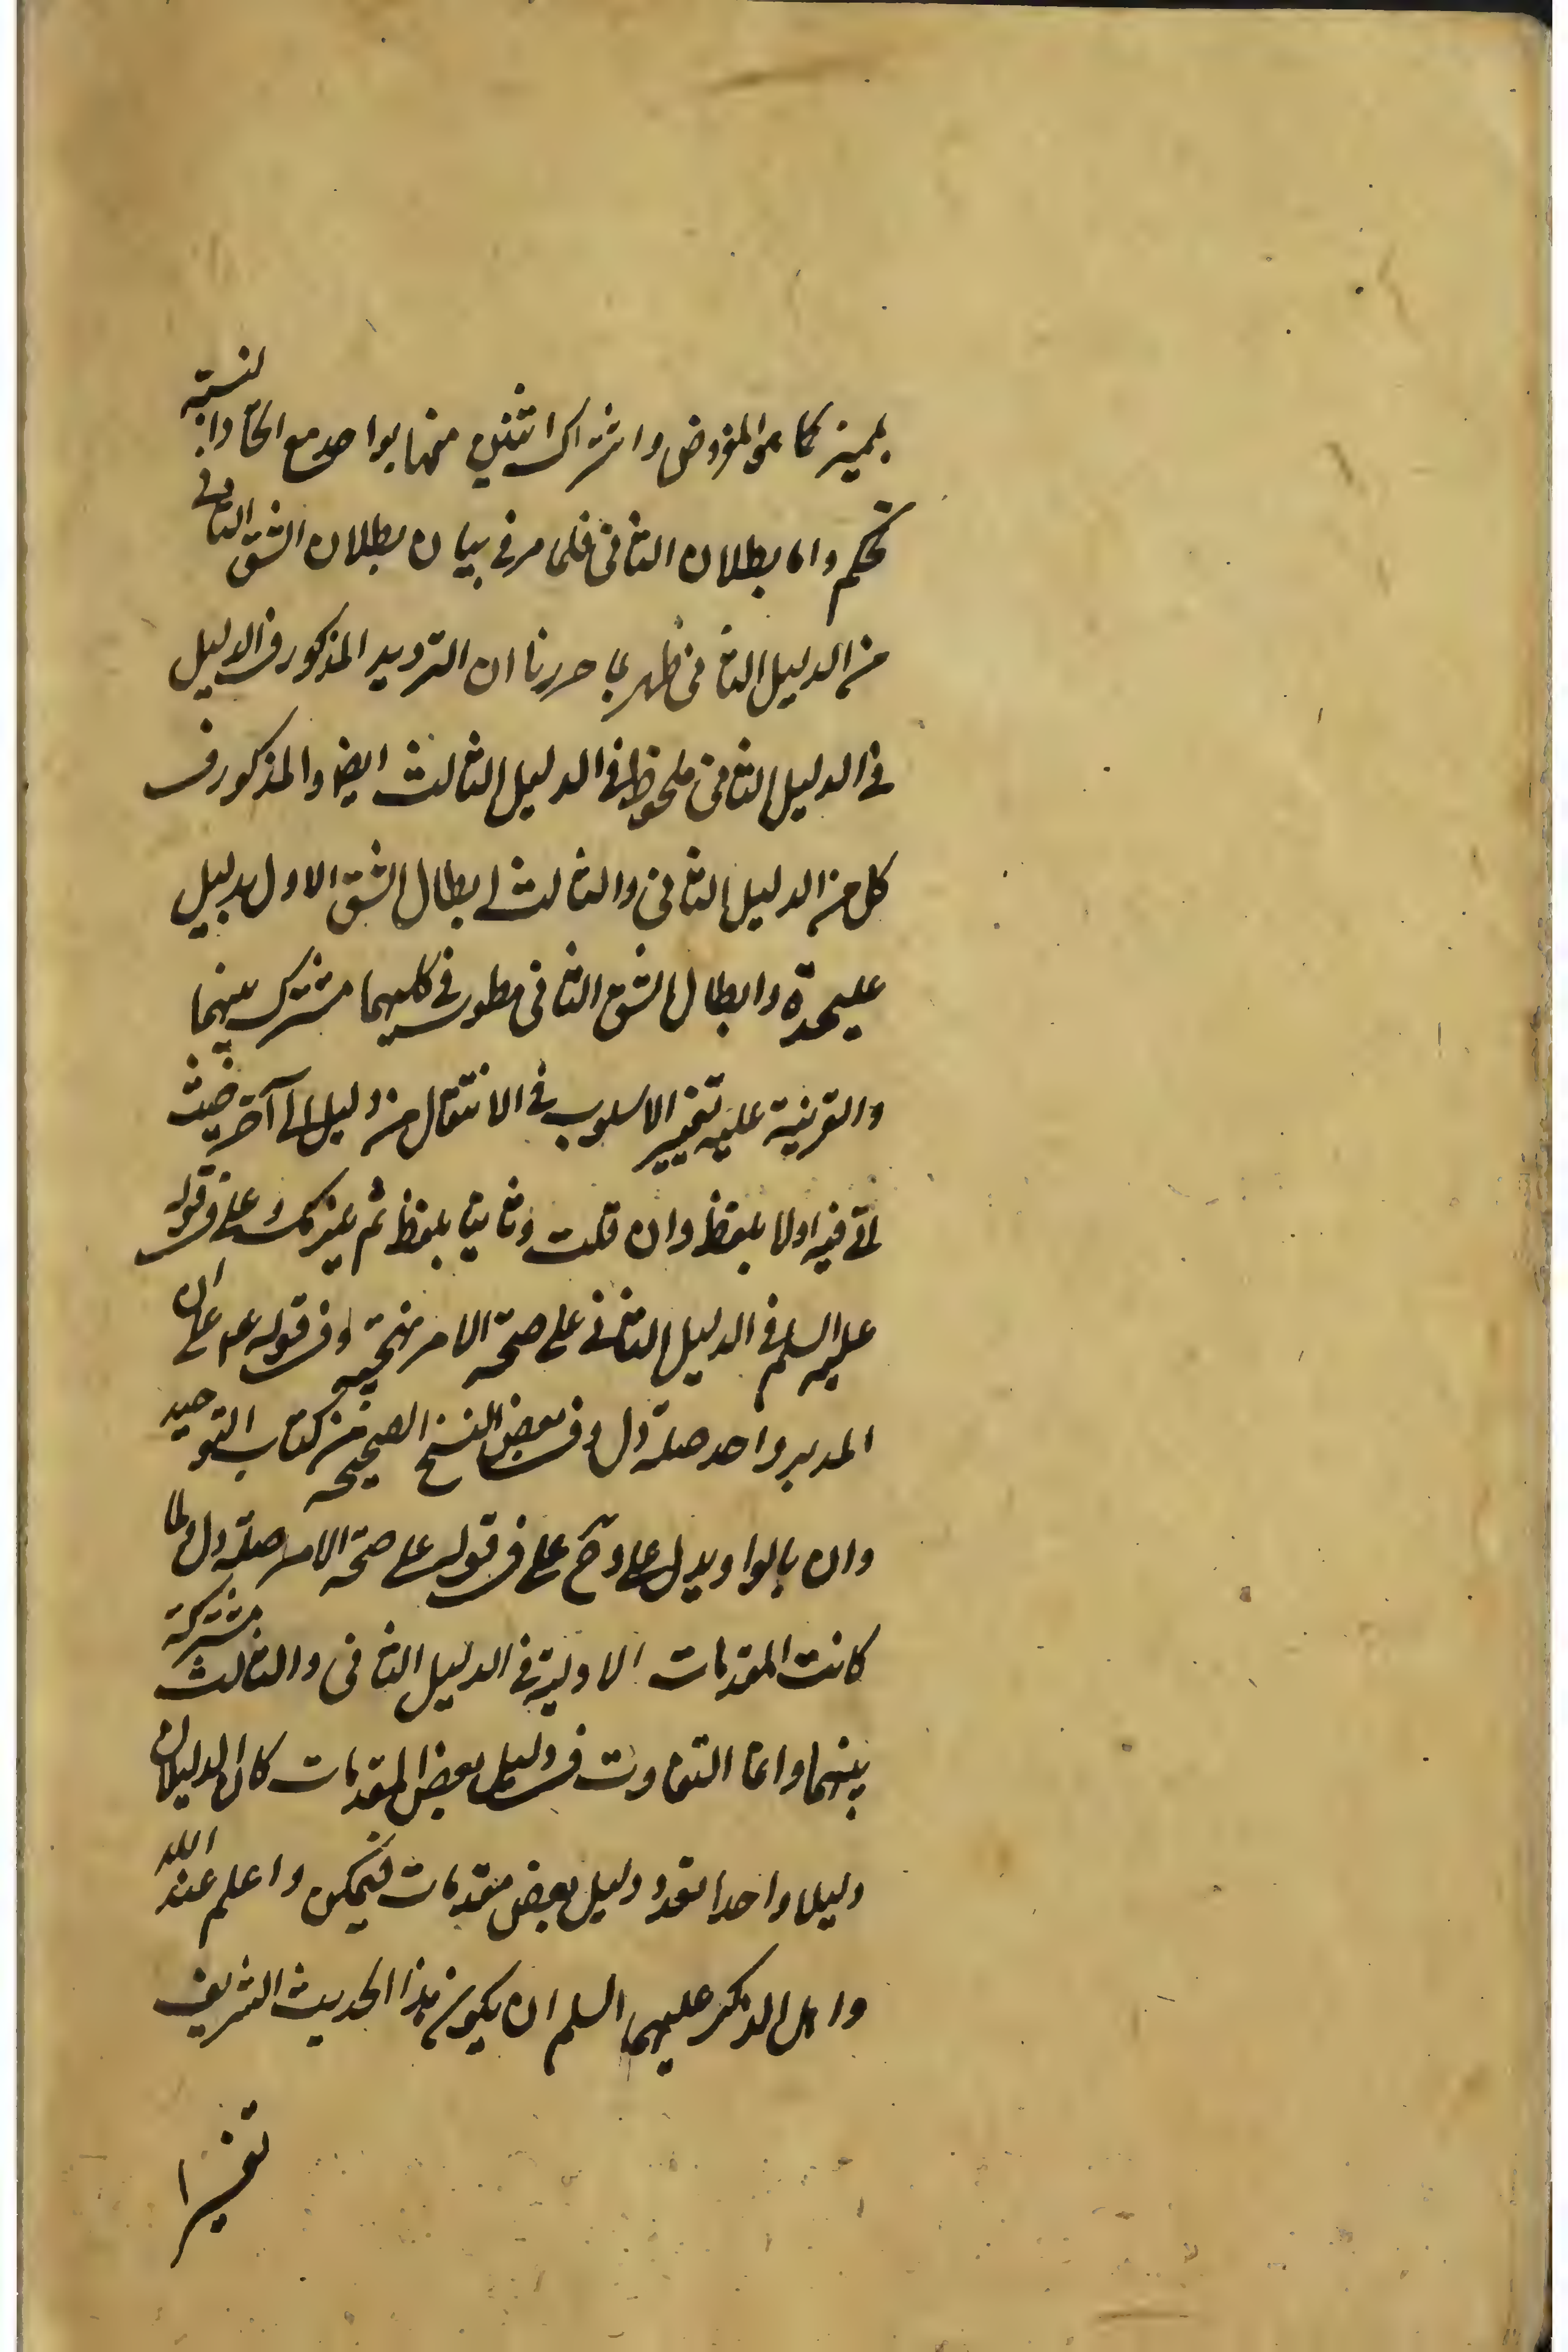 بمميز كما هو المفروض واشتراك اثنين منها بواحد مع اتحاد النسبة
تحكم واما بطلان الثانى فلما مر فى بيان بطلان الشق الثانى
من الدليل الثانى فظهر بما حررنا ان الترديد المذكور فى الدليل
فى الدليل الثانى ملحوظ فى الدليل الثالث ايضا والمذكور فى
كل من الدليل الثانى والثالث ابطال الشق الاول بدليل
عليحدة وابطال الشق الثانى مطور فى كليهما مشترك بينهما
والقرينة عليه تغيير الاسلوب فى الانتقال من دليل الى آخر حيث
اتى فيه اولا بلفظ وان قلت وثانيا بلفظ ثم يلزمك وعلى فى قوله
عليه السلم فى الدليل الثانى على صحة الامر نهجية وفى قوله عم على ان
المدبر واحد صلة دل وفى بعض النسخ الصحيحة من كتاب التوحيد
وان بالواو يدل على وح على فى قوله على صحة الامر صلة دل ولما
كانت المقدمات الاولية فى الدليل الثانى والثالث مشتركة
بينهما وانما التفاوت فى دليل بعض المقدمات كان الدليلان
دليلا واحدا تعدد دليل بعض مقدمات فيمكن واعلم عند الله
واهل الذكر عليهم السلم ان يكون هذا الحديث الشريف
تفسيرا